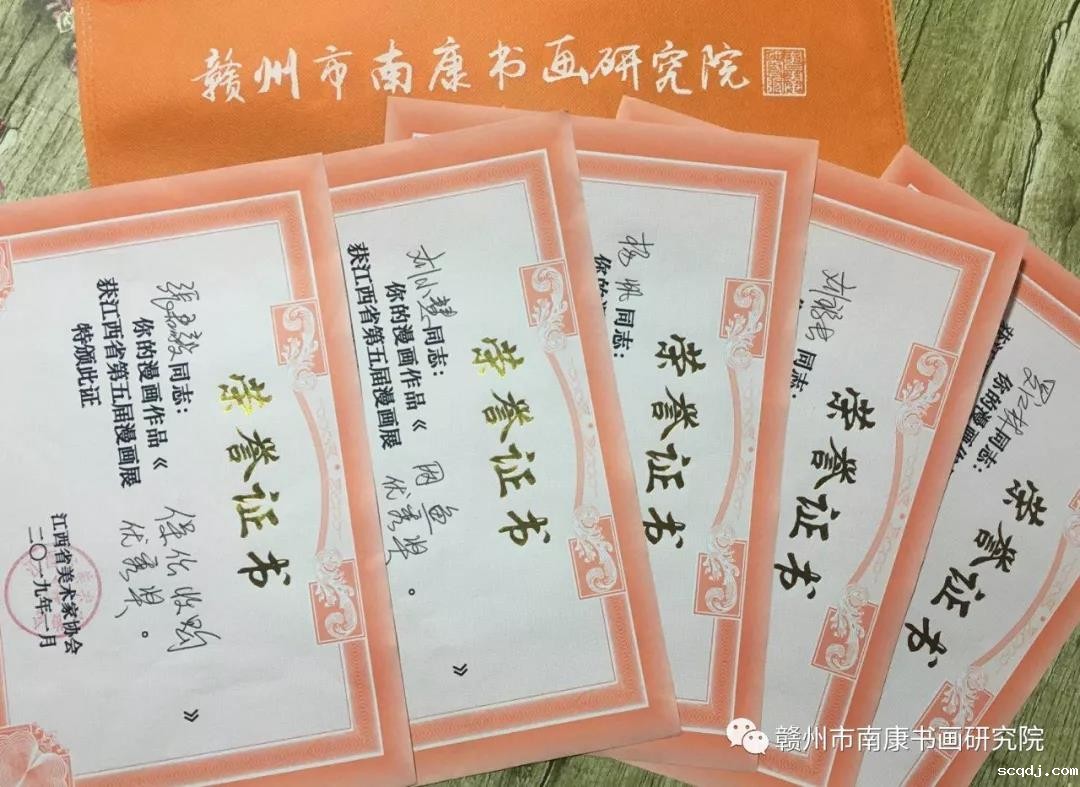 赣州市南康书画研究院
荣誉证书
张孟毅同志：
你的漫画作品《保价收购》
获江西省第五届漫画展优秀奖。
特颁此证
江西省美术家协会
二〇一九年一月
荣誉证书
刘小慧同志：
你的漫画作品《困鱼》
获江西省第五届漫画展优秀奖。
荣誉证书
杨帆同志：
荣誉证书
同志：
荣誉证书
同志：
你的漫画作
赣州市南康书画研究院
scqdj.com